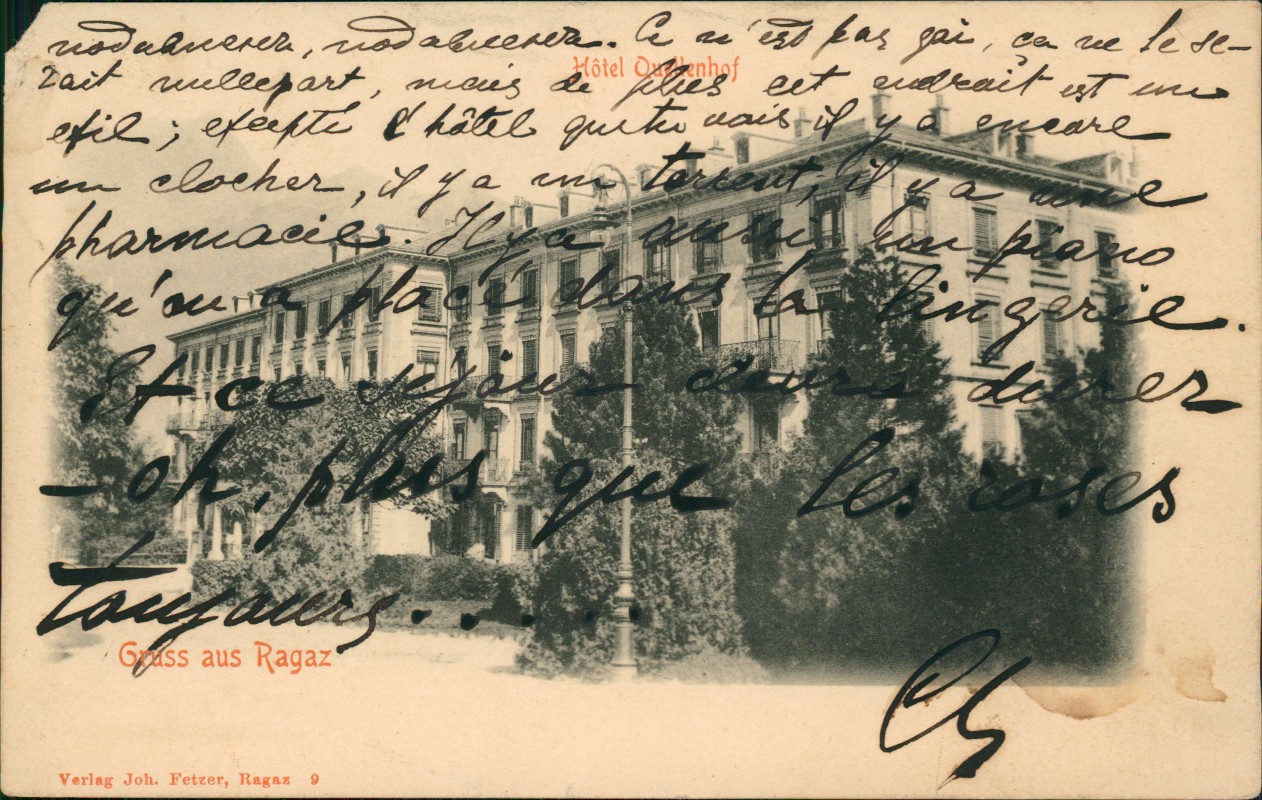 Ce n'est pas gai, ça ne le se-
Hôtel Quellenhof
rait nullepart, mais de plus cet endroit est un
exil; excepté l'hôtel que tu vois il y a encore
un clocher, il y a un torrent, il y a une
pharmacie. Il y a aussi un piano
qu'on a placé dans la lingerie.
Et ce séjour devra durer
- oh, plus que les roses
toujours.....
Gruss aus Ragaz
Verlag Joh. Fetzer, Ragaz 9